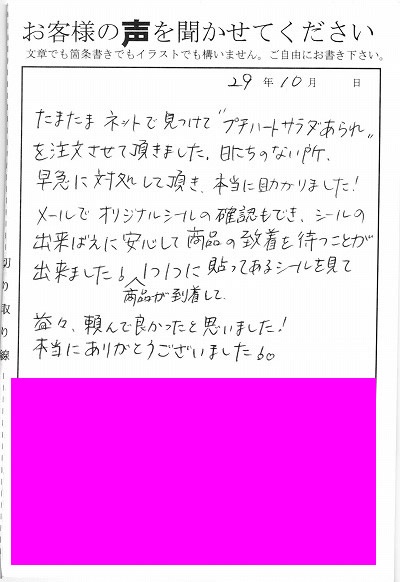 お客様の声を聞かせてください
文章でも箇条書きでもイラストでも構いません。ご自由にお書き下さい。
29年10月 日
たまたま ネットで見つけて"プチハートサラダあられ"
を注文させて頂きました。日にちのない所、
早急に対処して頂き、本当に助かりました!
メールで オリジナルシールの確認もでき、シールの
出来ばえに安心して商品の到着を待つことが
出来ました。1つ1つに貼ってあるシールを見て
商品が到着して
益々、頼んで良かったと思いました!
本当にありがとうございました。
切り取り線